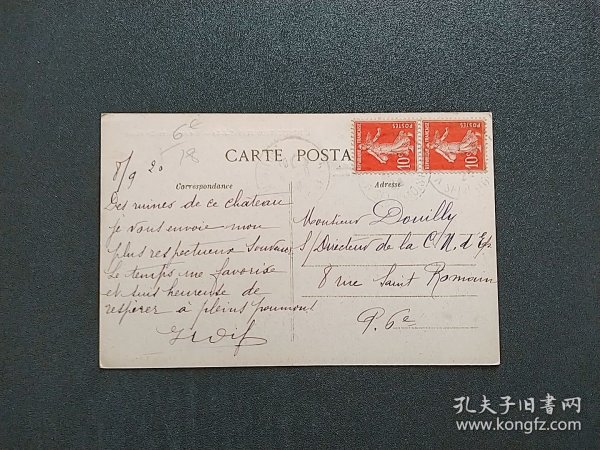 6e
18
8/9 20
CARTE POSTA
Correspondance
Adresse
Des ruines de ce chateau
je vous envoie mon
plus respectueux souvenir
Le temps me favorise
et suis heureuse de
respirer à pleins poumons
Monsieur Douilly
S/Directeur de la C.N. d'Ep
8 rue Saint Romain
P. 6e
POSTES
REPUBLIQUE FRANÇAISE
10c
POSTES
REPUBLIQUE FRANÇAISE
10c
孔夫子旧书网
www.kongfz.com